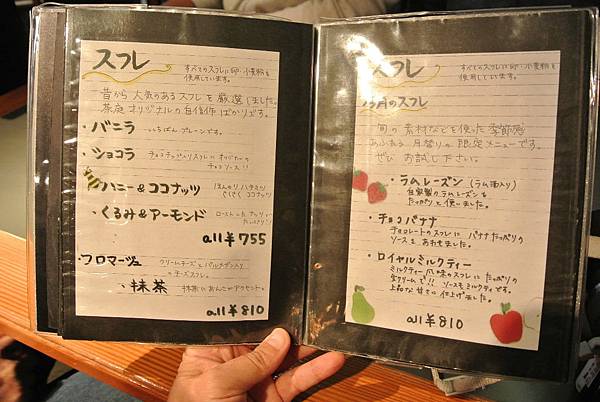 スフレ
すべてのスフレに卵・小麦粉を
使用しています。
昔から人気のあるスフレを厳選しました。
茶庭オリジナルの自信作ばかりです。
・バニラ いちばんプレーンです。
・ショコラ チョコチップ入りスフレにオリジナルの
チョコソース!!
・ハニー&ココナッツ ほんのりハチミツ
ココナッツ
・くるみ&アーモンド ローストしたナッツ
たっぷり!!
all ¥755
・フロマージュ クリームチーズと
のチーズスフレ。
・抹茶 抹茶にあんこがアクセント。
all ¥810
スフレ
すべてのスフレに卵・小麦粉を
使用しています。
月のスフレ
旬の素材などを使った季節感
あふれる月替りの限定メニューです。
ぜひお試し下さい。
・ラムレーズン(ラム酒入り)
自家製のラムレーズンを
たっぷりと使いました。
・チョコバナナ
チョコレートのスフレにバナナたっぷりの
ソースをあわせました。
・ロイヤルミルクティー
ミルクティー風味のスフレにたっぷりの
生クリームで!! ソースもミルクティです。
上品な甘さに仕上げました。
all ¥810